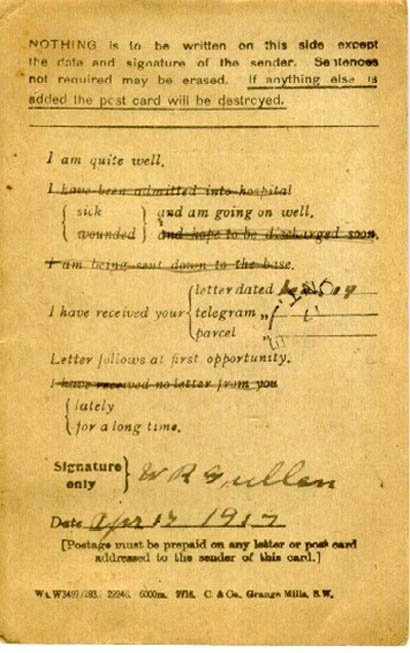 NOTHING is to be written on this side except
the date and signature of the sender. Sentences
not required may be erased. If anything else is
added the post card will be destroyed.
I am quite well.
I have been admitted into hospital
{ sick } and am going on well.
{ wounded } and hope to be discharged soon.
I am being sent down to the base.
{ letter dated
I have received your { telegram „
{ parcel „
Letter follows at first opportunity.
I have received no letter from you
{ lately
{ for a long time.
Signature
only } W R Gullen
Date Apr 17 1917
[Postage must be prepaid on any letter or post card
addressed to the sender of this card.]
Wt. W3497/293. 29246. 6000m. 9/16. C. & Co., Grange Mills, S.W.